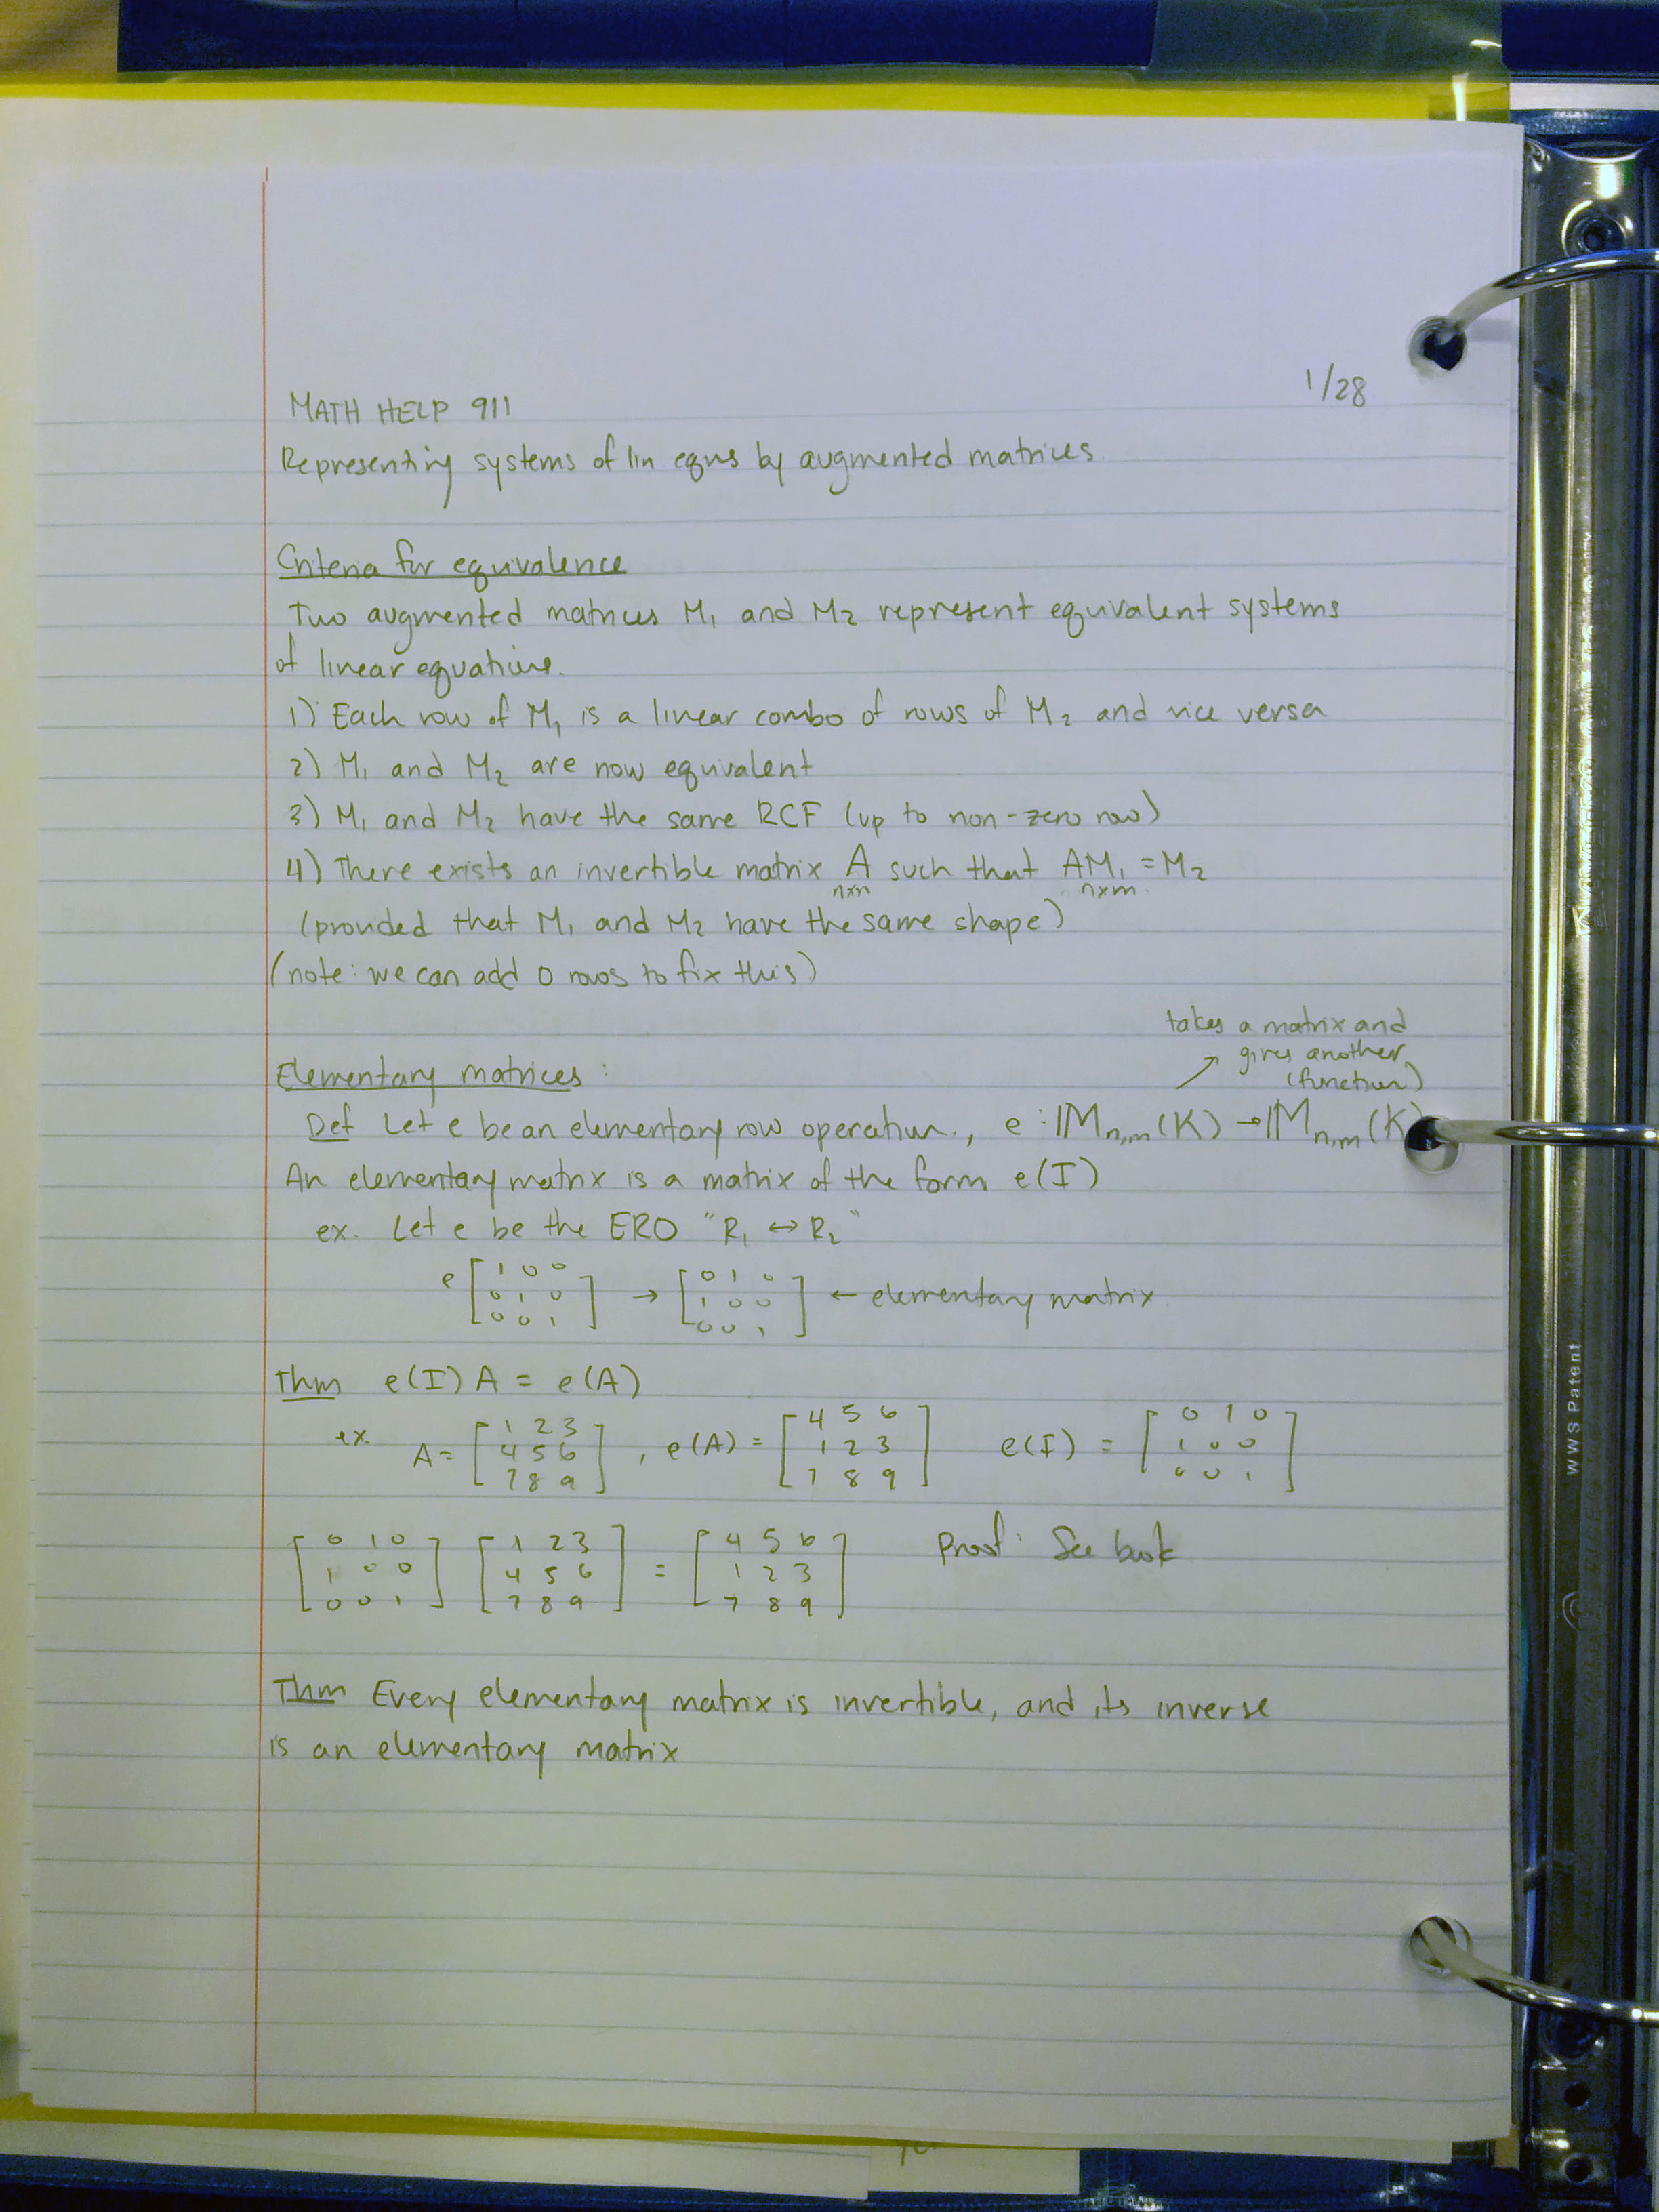 MATH HELP 911
1/28
Representing systems of lin eqns by augmented matrices
Criteria for equivalence
Two augmented matrices M₁ and M₂ represent equivalent systems
of linear equations.
1) Each row of M₁ is a linear combo of rows of M₂ and vice versa
2) M₁ and M₂ are row equivalent
3) M₁ and M₂ have the same RCF (up to non-zero row)
4) There exists an invertible matrix A such that AM₁ = M₂
n×n n×m
(provided that M₁ and M₂ have the same shape)
(note: we can add 0 rows to fix this)
takes a matrix and
↗ gives another
(function)
Elementary matrices:
Def Let e be an elementary row operation, e : 𝕄n,m (K) → 𝕄n,m (K
An elementary matrix is a matrix of the form e(I)
ex. Let e be the ERO "R₁ ↔ R₂"
e [1 0 0 → [0 1 0
0 1 0 1 0 0 ← elementary matrix
0 0 1] 0 0 1]
Thm e(I) A = e(A)
ex. A = [1 2 3 , e(A) = [4 5 6 e(I) = [0 1 0
4 5 6 1 2 3 1 0 0
7 8 9] 7 8 9] 0 0 1]
[0 1 0 [1 2 3 = [4 5 6 Proof: See book
1 0 0 4 5 6 1 2 3
0 0 1] 7 8 9] 7 8 9]
Thm Every elementary matrix is invertible, and its inverse
is an elementary matrix
WWS Patent